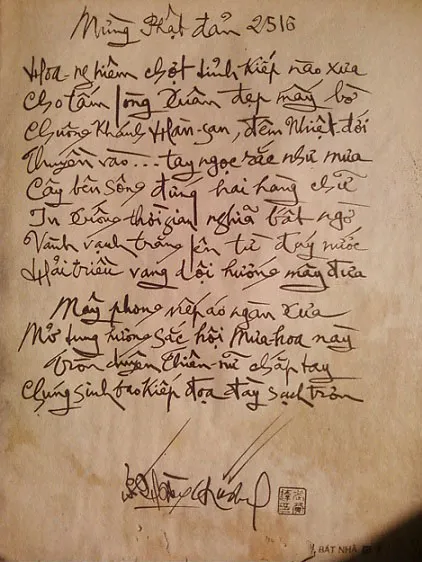 Mừng Phật đản 2516
Hoa-nghiêm chợt tỉnh kiếp nào xưa
Cho tấm lòng Xuân đẹp mấy bờ
Chuông Khánh Hàn-san, đêm Nhiệt-đới
Thuyền vào... tay ngọc rắc như mưa
Cây bên sông đứng hai hàng chữ
In xuống thời gian nghĩa bất ngờ
Vành vạnh trăng lên từ đáy nước
Hải triều vang dội hướng mây đưa
Mây phong nếp áo ngàn xưa
Mở tung hương sắc hội Mùa-hoa này
Tròn duyên Thiên-nữ chắp tay
Chúng sinh bao kiếp đọa đầy sạch trơn
BÁT NHÃ